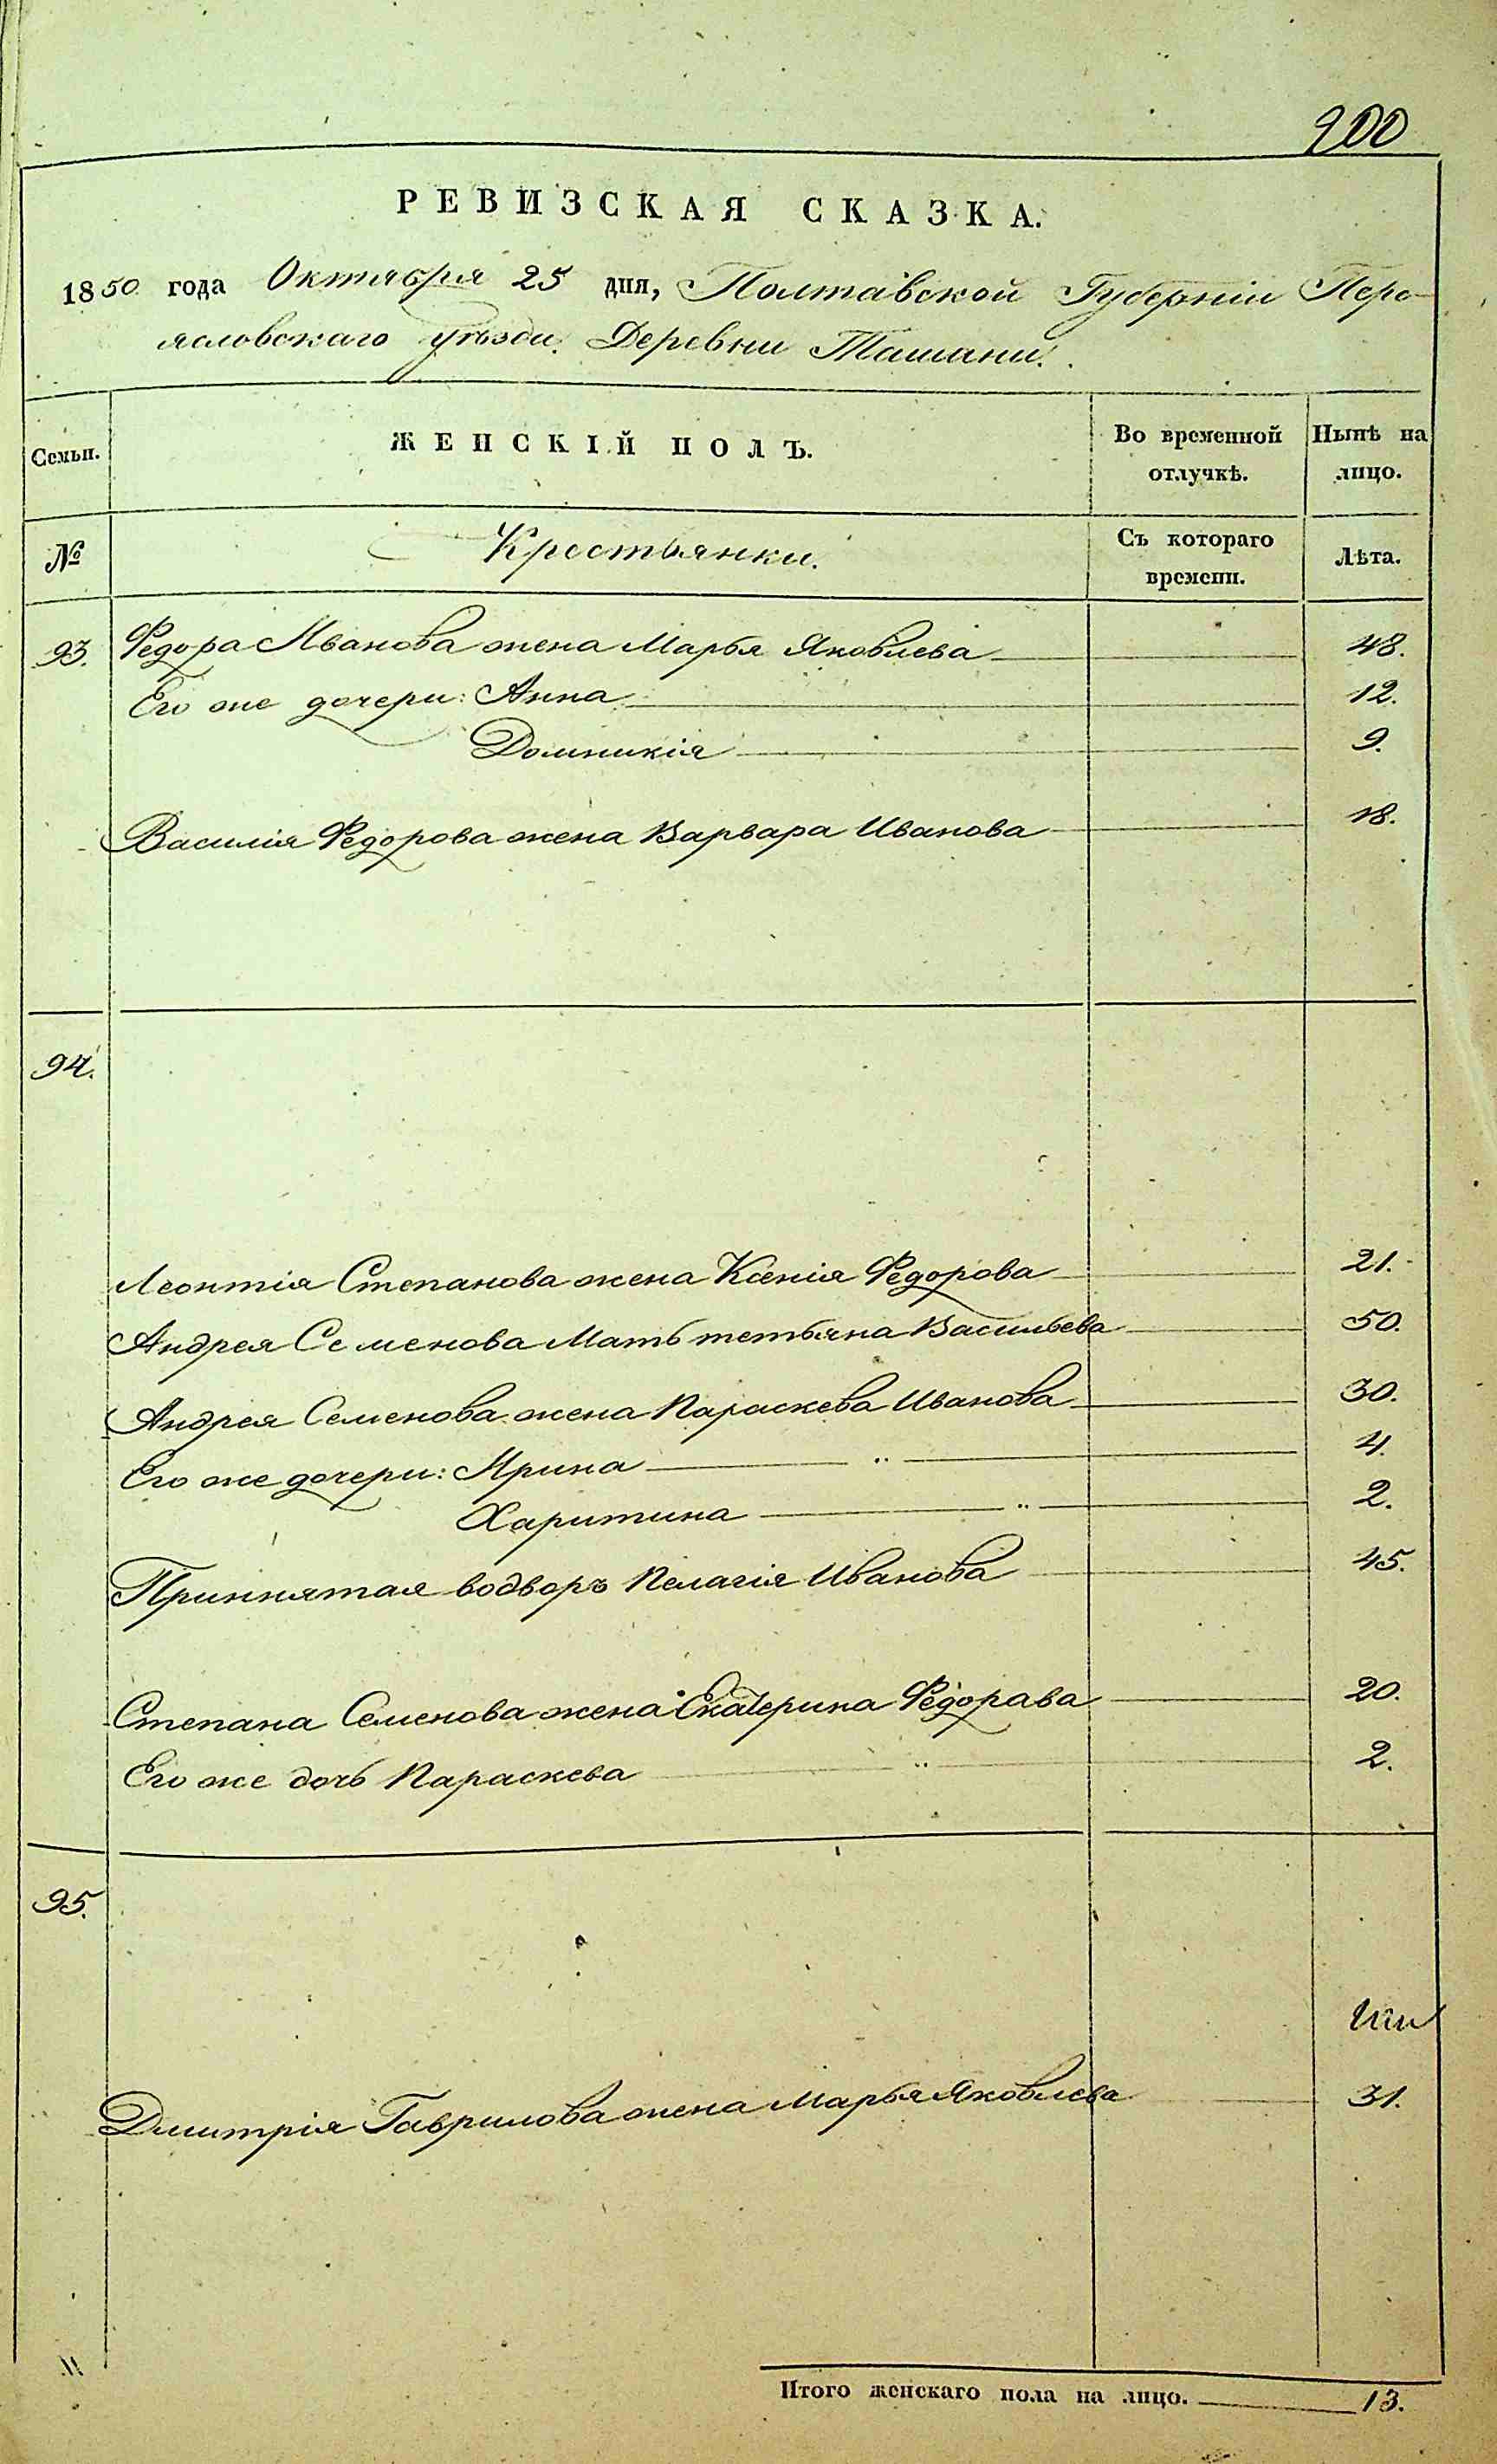 200
РЕВИЗСКАЯ СКАЗКА.
1850 года Октября 25 дня, Полтавской Губерніи Пере-
ясловскаго уѣзда. Деревни Ташани.
Семьи. ЖЕНСКІЙ ПОЛЪ. Во временной отлучкѣ. Нынѣ на лицо.
№ Крестьянки. Съ котораго времени. Лѣта.
93. Федора Иванова жена Марья Яковлева 48.
Его же дочери: Анна 12.
Домникія 9.
Василія Федорова жена Варвара Иванова 18.
94.
Леонтія Степанова жена Ксенія Федорова 21.
Андрея Семенова Мать тетьяна Васильева 50.
Андрея Семенова жена Параскева Иванова 30.
Его же дочери: Ирина " 4.
Харитина " 2.
Приннятая водворъ Пелагія Иванова 45.
Степана Семенова жена Екатерина Федорава 20.
Его же дочь Параскева " 2.
95.
Дмитрія Гаврилова жена Марья Яковлева 31.
Итого женскаго пола на лицо. 13.